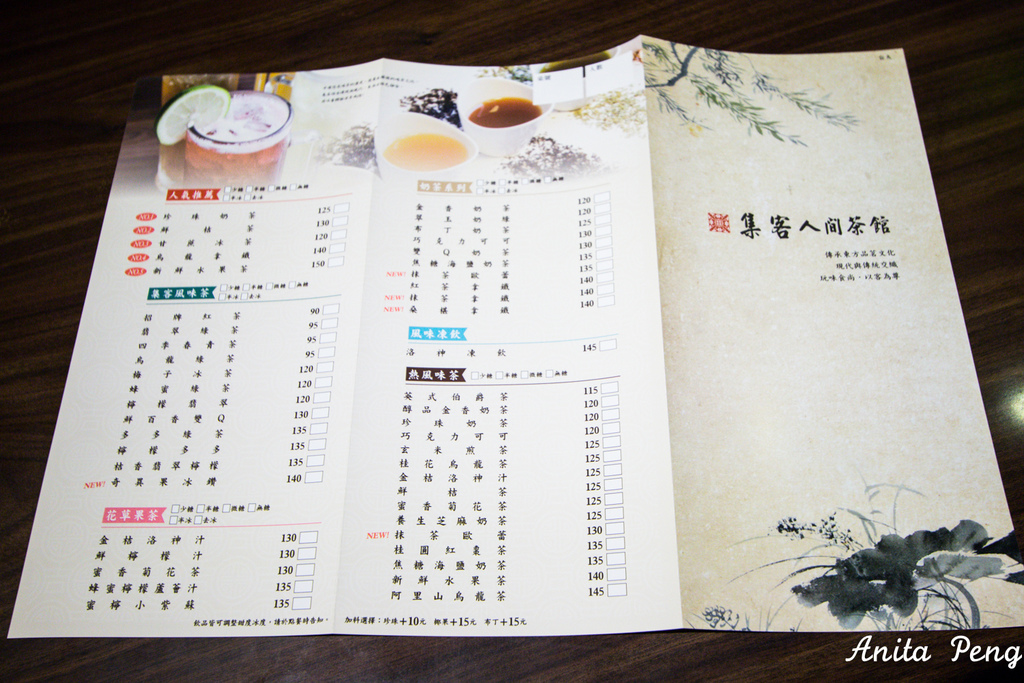 人氣推薦 少糖 半糖 微糖 無糖
半冰 去冰
NO.1 珍珠奶茶 125
NO.2 鮮桔茶 130
NO.3 甘蔗冰茶 120
NO.4 烏龍拿鐵 140
NO.5 新鮮水果茶 150
集客風味茶 少糖 半糖 微糖 無糖
半冰 去冰
招牌紅茶 90
翡翠綠茶 95
四季春青茶 95
烏龍綠茶 95
梅子冰茶 120
蜂蜜綠茶 120
檸檬翡翠 120
鮮百香雙Q 130
多多綠茶 135
檸檬多多 135
桔香翡翠檸檬 135
NEW! 奇異果冰鑽 140
花草果茶 少糖 半糖 微糖 無糖
半冰 去冰
金桔洛神汁 130
鮮檸檬汁 130
蜜香菊花茶 130
蜂蜜檸檬蘆薈汁 135
蜜檸小紫蘇 135
飲品皆可調整甜度冰度，請於點餐時告知。
奶茶系列 少糖 半糖 微糖 無糖
半冰 去冰
金香奶茶 120
翠玉奶綠 120
布丁奶茶 125
巧克力可可 130
雙Q奶茶 130
焦糖海鹽奶茶 135
NEW! 抹茶歐蕾 135
紅茶拿鐵 140
NEW! 抹茶拿鐵 140
NEW! 桑椹拿鐵 140
風味凍飲
洛神凍飲 145
熱風味茶 少糖 半糖 微糖 無糖
英式伯爵茶 115
醇品金香奶茶 120
珍珠奶茶 120
巧克力可可 120
玄米煎茶 125
桂花烏龍茶 125
金桔洛神汁 125
鮮桔茶 125
蜜香菊花茶 125
養生芝麻奶茶 125
NEW! 抹茶歐蕾 130
桂圓紅棗茶 135
焦糖海鹽奶茶 135
新鮮水果茶 140
阿里山烏龍茶 145
加料選擇：珍珠+10元 椰果+15元 布丁+15元
桌號 人數
集客人間茶館
傳承東方品茗文化
現代與傳統交織
玩味食尚，以客為尊
Anita Peng